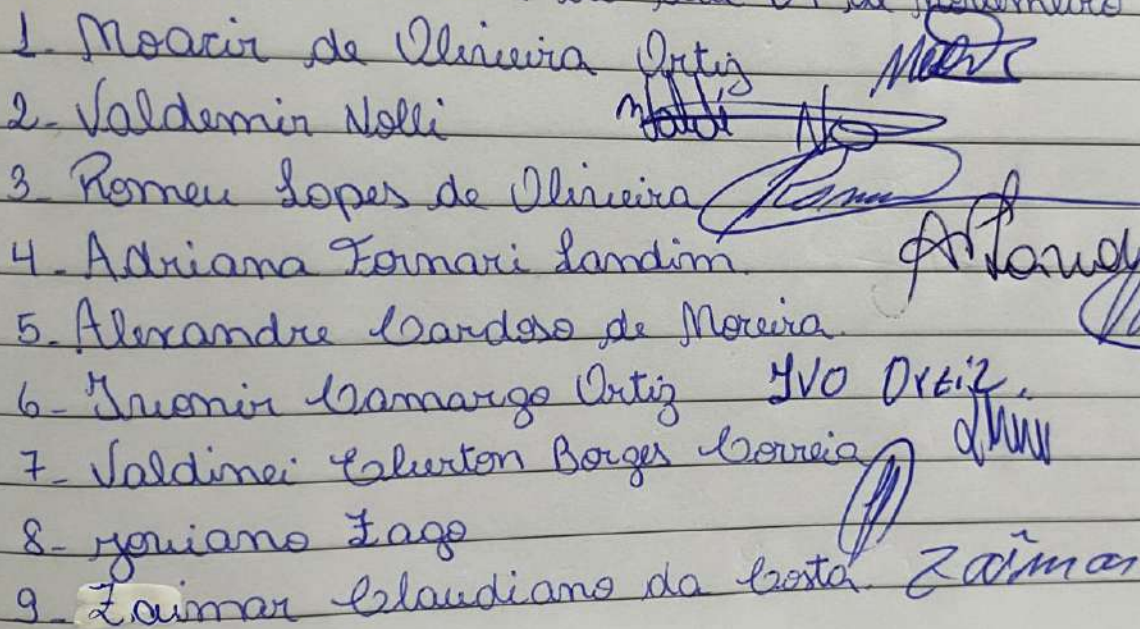 de
1. Moacir de Oliveira Ortiz
2- Valdemir Nolli Valdi No
3- Romeu Lopes de Oliveira
4- Adriana Fornari Landim
5- Alexandre Cardoso de Moreira.
6- Ivonir Camargo Ortiz IVO Ortiz.
7- Valdinei Cleverton Borges Correia
8- Joviano Zago
9- Zaimar Claudiano da Costa. Zaimar